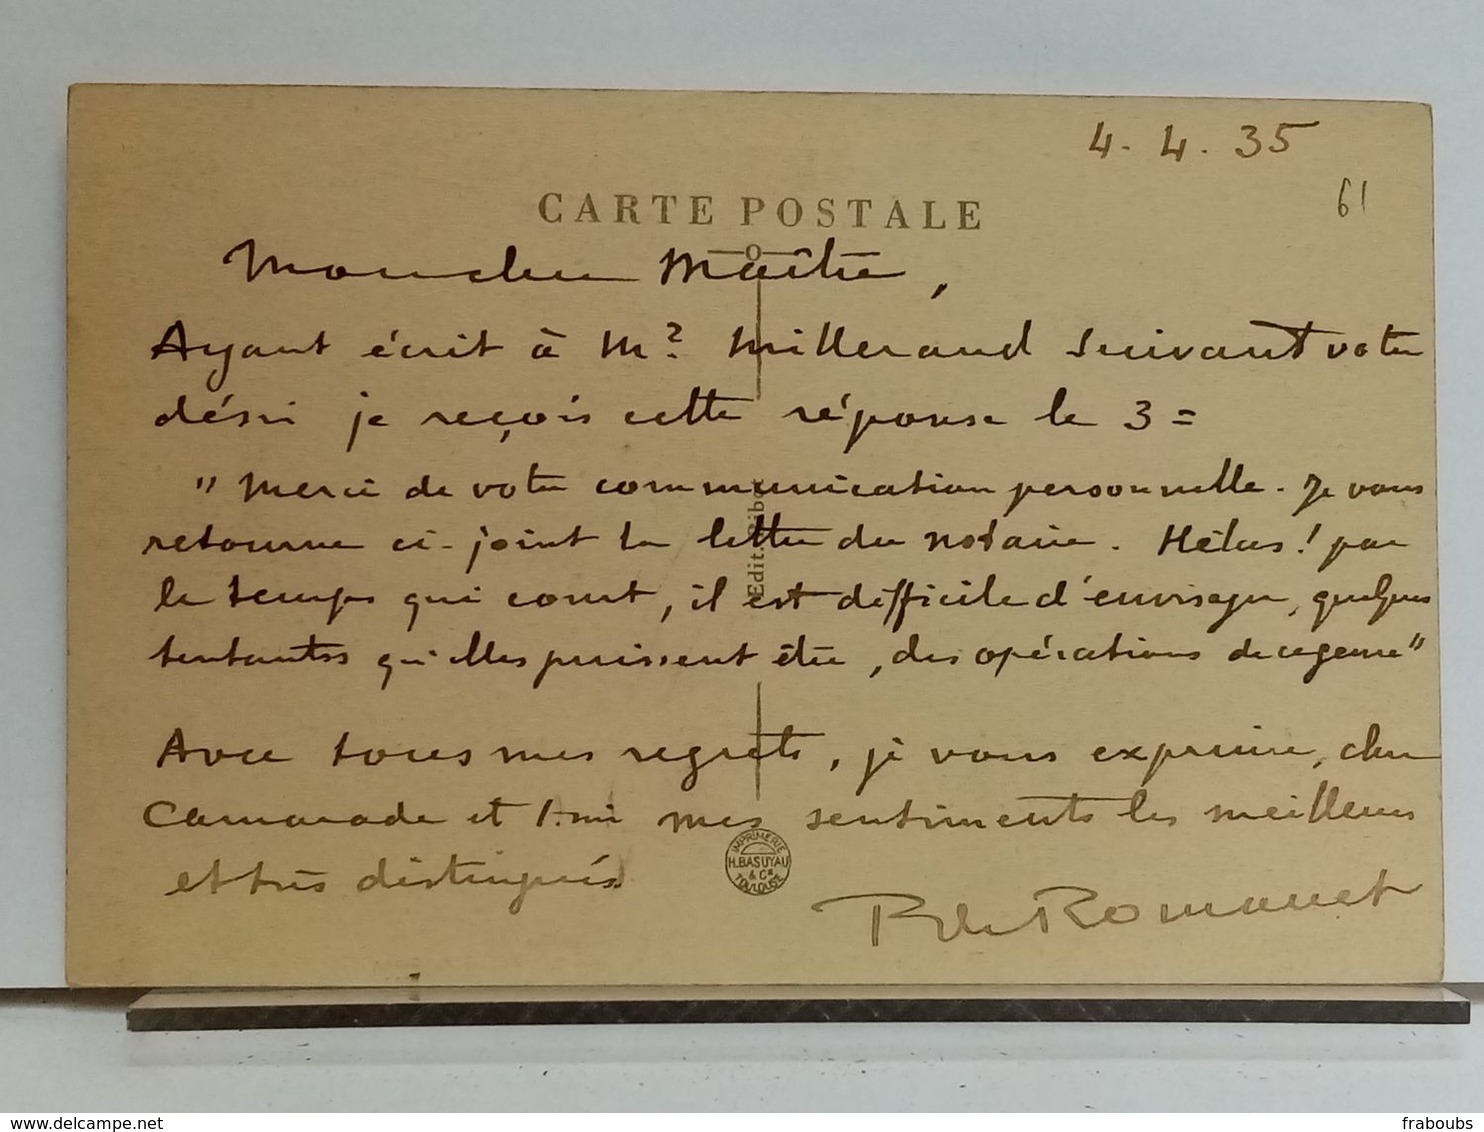 4. 4. 35
61
CARTE POSTALE
Mon cher Maître,
Ayant écrit à Mr. Millerand suivant votre
désir je reçois cette réponse le 3 =
"Merci de votre communication personnelle. Je vous
retourne ci-joint la lettre du notaire. Hélas! par
le temps qui court, il est difficile d'envisager, quelques
tentantes qu'elles puissent être, des opérations de ce genre"
Avec tous mes regrets, je vous exprime, cher
Camarade et Ami mes sentiments les meilleurs
et très distingués
R de Romanet
Edit.
IMPRIMERIE
H. BASUYAU
& Cie
TOULOUSE
delcampe.net
fraboubs